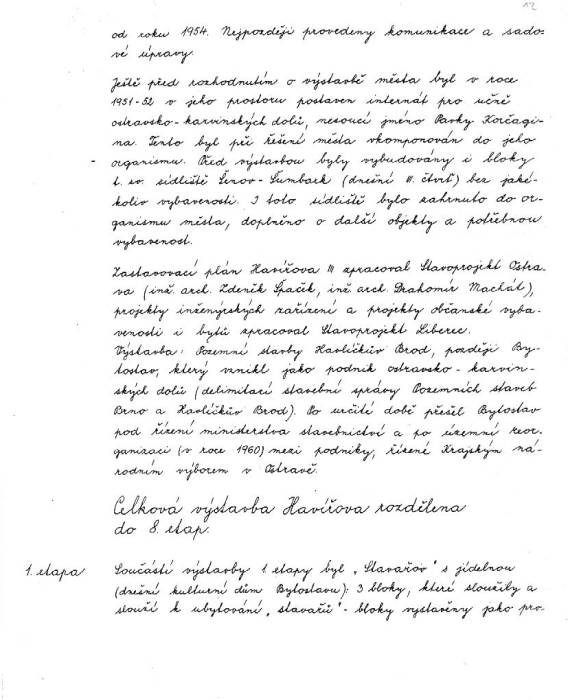 12
od roku 1954. Nejpozději provedeny komunikace a sado-
vé úpravy.
Ještě před rozhodnutím o výstavbě města byl v roce
1951-52 v jeho prostoru postaven internát pro učně
ostravsko-karvinských dolů, nesoucí jméno Pavky Korčagi-
na. Tento byl při řešení města vkomponován do jeho
organismu. Před výstavbou byly vybudovány i bloky
t. zv. sídliště Šenov-Šumbark (dnešní II. čtvrť) bez jaké-
koliv vybavenosti. I toto sídliště bylo zahrnuto do or-
ganismu města, doplněno o další objekty a potřebnou
vybavenost.
Zastavovací plán Havířova III zpracoval Stavoprojekt Ostra-
va (inž. arch. Zdeněk Špačík, inž. arch. Drahomír Machát),
projekty inženýrských zařízení a projekty občanské vyba-
venosti i bytů zpracoval Stavoprojekt Liberec.
Výstavba: Pozemní stavby Havlíčkův Brod, později By-
tostav, který vznikl jako podnik ostravsko-karvin-
ských dolů (delimitací stavební správy Pozemních staveb
Brno a Havlíčkův Brod). Po určité době přešel Bytostav
pod řízení ministerstva stavebnictví a po územní reor-
ganizaci (v roce 1960) mezi podniky, řízené Krajským ná-
rodním výborem v Ostravě.
Celková výstavba Havířova rozdělena
do 8. etap.
1. etapa
Součástí výstavby 1. etapy byl "Stavařov" s jídelnou
(dnešní kulturní dům Bytostavu): 3 bloky, které sloužily a
slouží k ubytování "stavařů" - bloky vystavěny jako pro-